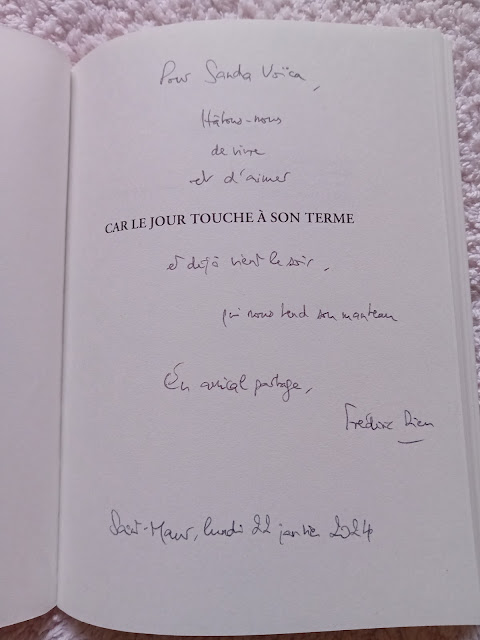 Pour Sanda Voïca,
Hâtons-nous
de vivre
et d'aimer
CAR LE JOUR TOUCHE À SON TERME
et déjà vient le soir,
qui nous tend son manteau
En amical partage,
Frédéric Dieu
Saint-Maur, lundi 22 janvier 2024